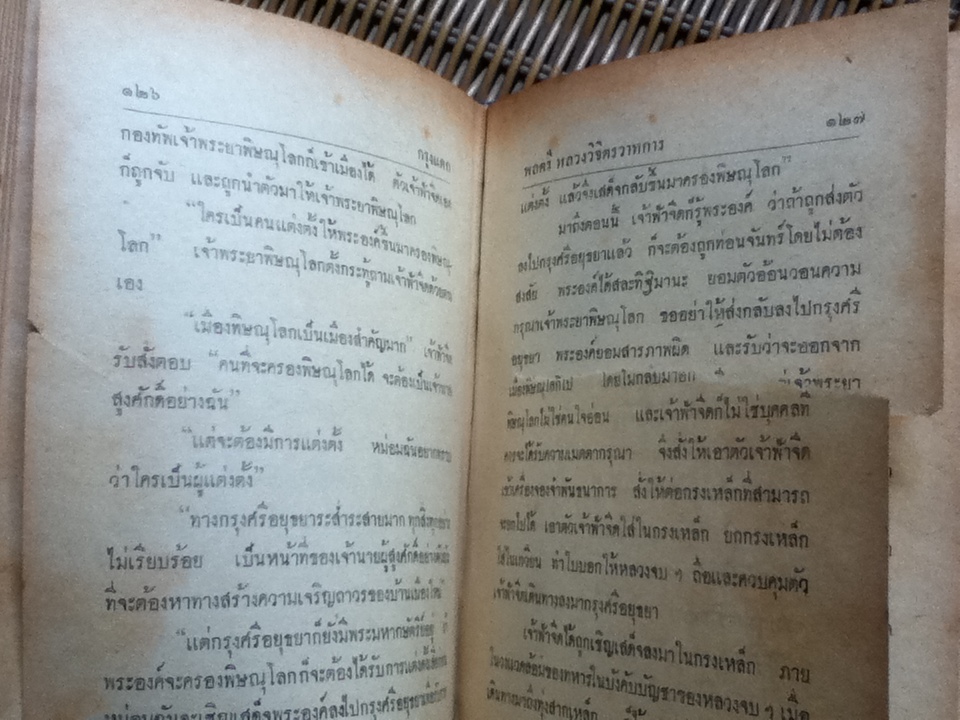 ๑๒๖
กรุงแตก
กองทัพเจ้าพระยาพิษณุโลกก็เข้าเมืองได้ ตัวเจ้าฟ้าจีดเอง
ก็ถูกจับ และถูกนำตัวมาให้เจ้าพระยาพิษณุโลก
“ใครเป็นคนแต่งตั้งให้พระองค์ขึ้นมาครองพิษณุ-
โลก” เจ้าพระยาพิษณุโลกตั้งกระทู้ถามเจ้าฟ้าจีดด้วยตน
เอง
“เมืองพิษณุโลกเป็นเมืองสำคัญมาก” เจ้าฟ้าจีด
รับสั่งตอบ “คนที่จะครองพิษณุโลกได้ จะต้องเป็นเจ้านาย
สูงศักดิ์อย่างฉัน”
“แต่จะต้องมีการแต่งตั้ง หม่อมฉันอยากทราบ
ว่าใครเป็นผู้แต่งตั้ง”
“ทางกรุงศรีอยุธยาระส่ำระสายมาก ทุกสิ่งทุกอย่าง
ไม่เรียบร้อย เป็นหน้าที่ของเจ้านายผู้สูงศักดิ์อย่างตัวฉัน
ที่จะต้องหาทางสร้างความเจริญถาวรของบ้านเมืองใหม่”
“แต่กรุงศรีอยุธยาก็ยังมีพระมหากษัตริย์อยู่ ถ้า
พระองค์จะครองพิษณุโลกก็จะต้องได้รับการแต่งตั้ง
หม่อมฉันจะเชิญเสด็จพระองค์ลงไปกรุงศรีอยุธยา
๑๒๗
พลตรี หลวงวิจิตรวาทการ
แต่งตั้ง แล้วจึงเสด็จกลับขึ้นมาครองพิษณุโลก”
มาถึงตอนนี้ เจ้าฟ้าจีดก็รู้พระองค์ ว่าถ้าถูกส่งตัว
ลงไปกรุงศรีอยุธยาแล้ว ก็จะต้องถูกท่อนจันทร์โดยไม่ต้อง
สงสัย พระองค์ได้สละทิฐิมานะ ยอมตัวอ้อนวอนความ
กรุณาเจ้าพระยาพิษณุโลก ขออย่าให้ส่งกลับลงไปกรุงศรี
อยุธยา พระองค์ยอมสารภาพผิด และรับว่าจะออกจาก
เมืองพิษณุโลกไป โดยไม่กลับมาอีก เจ้าพระยา
พิษณุโลกไม่ใช่คนใจอ่อน และเจ้าฟ้าจีดก็ไม่ใช่บุคคลที่
ควรจะได้รับความเมตตากรุณา จึงสั่งให้เอาตัวเจ้าฟ้าจีด
เข้าเครื่องจองจำพันธนาการ สั่งให้ต่อกรงเหล็กที่สามารถ
จะยกไปได้ เอาตัวเจ้าฟ้าจีดใส่ในกรงเหล็ก ยกกรงเหล็ก
ใส่ในเกวียน ทำใบบอกให้หลวงจบ ฯ ถือและควบคุมตัว
เจ้าฟ้าจีดเดินทางลงมากรุงศรีอยุธยา
เจ้าฟ้าจีดได้ถูกเชิญเสด็จลงมาในกรงเหล็ก ภาย
ในวงแวดล้อมของทหารในบังคับบัญชาของหลวงจบ ฯ เมื่อ
เดินทางมาถึงทุ่งสากเหล็ก